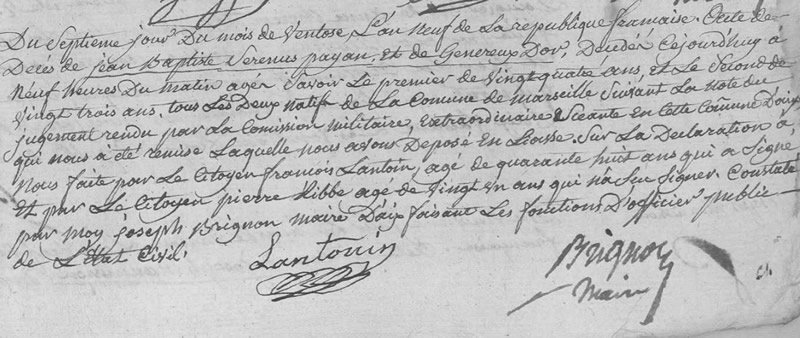 Du Septieme jour Du mois de Ventose L'an Neuf de La republique francaise. Acte de
Decés de jean Baptiste Verenus payan, et de Genereux Dor, Decedés Cejourd'huy a
Neuf heures Du Matin agés Savoir Le premier de Vingt quatre ans, et Le Second de
Vingt trois ans, tous Les Deux natifs de La Comune de Marseille Suivant La Note du
jugement rendu par La Comission Militaire, Extraordinaire Sceante en Cette Comune D'aix
qui nous à été remise Laquelle nous avons Deposé En Liasse. Sur La Declaration à,
Nous faite par Le Citoyen françois Lantoin, agé de quarante huit ans qui a Signé
Et par Le Citoyen pierre Ribbe agé de Vingt un ans qui n'a Seu Signer Constaté
par Moy joseph Brignon Maire D'aix faisant Les fonctions D'officier public
de L'Etat Civil.
Lantouin
Brignon
Maire